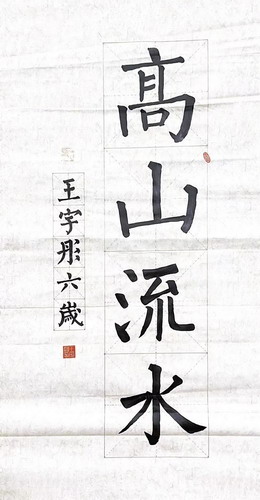 高山流水
王字彤六歲